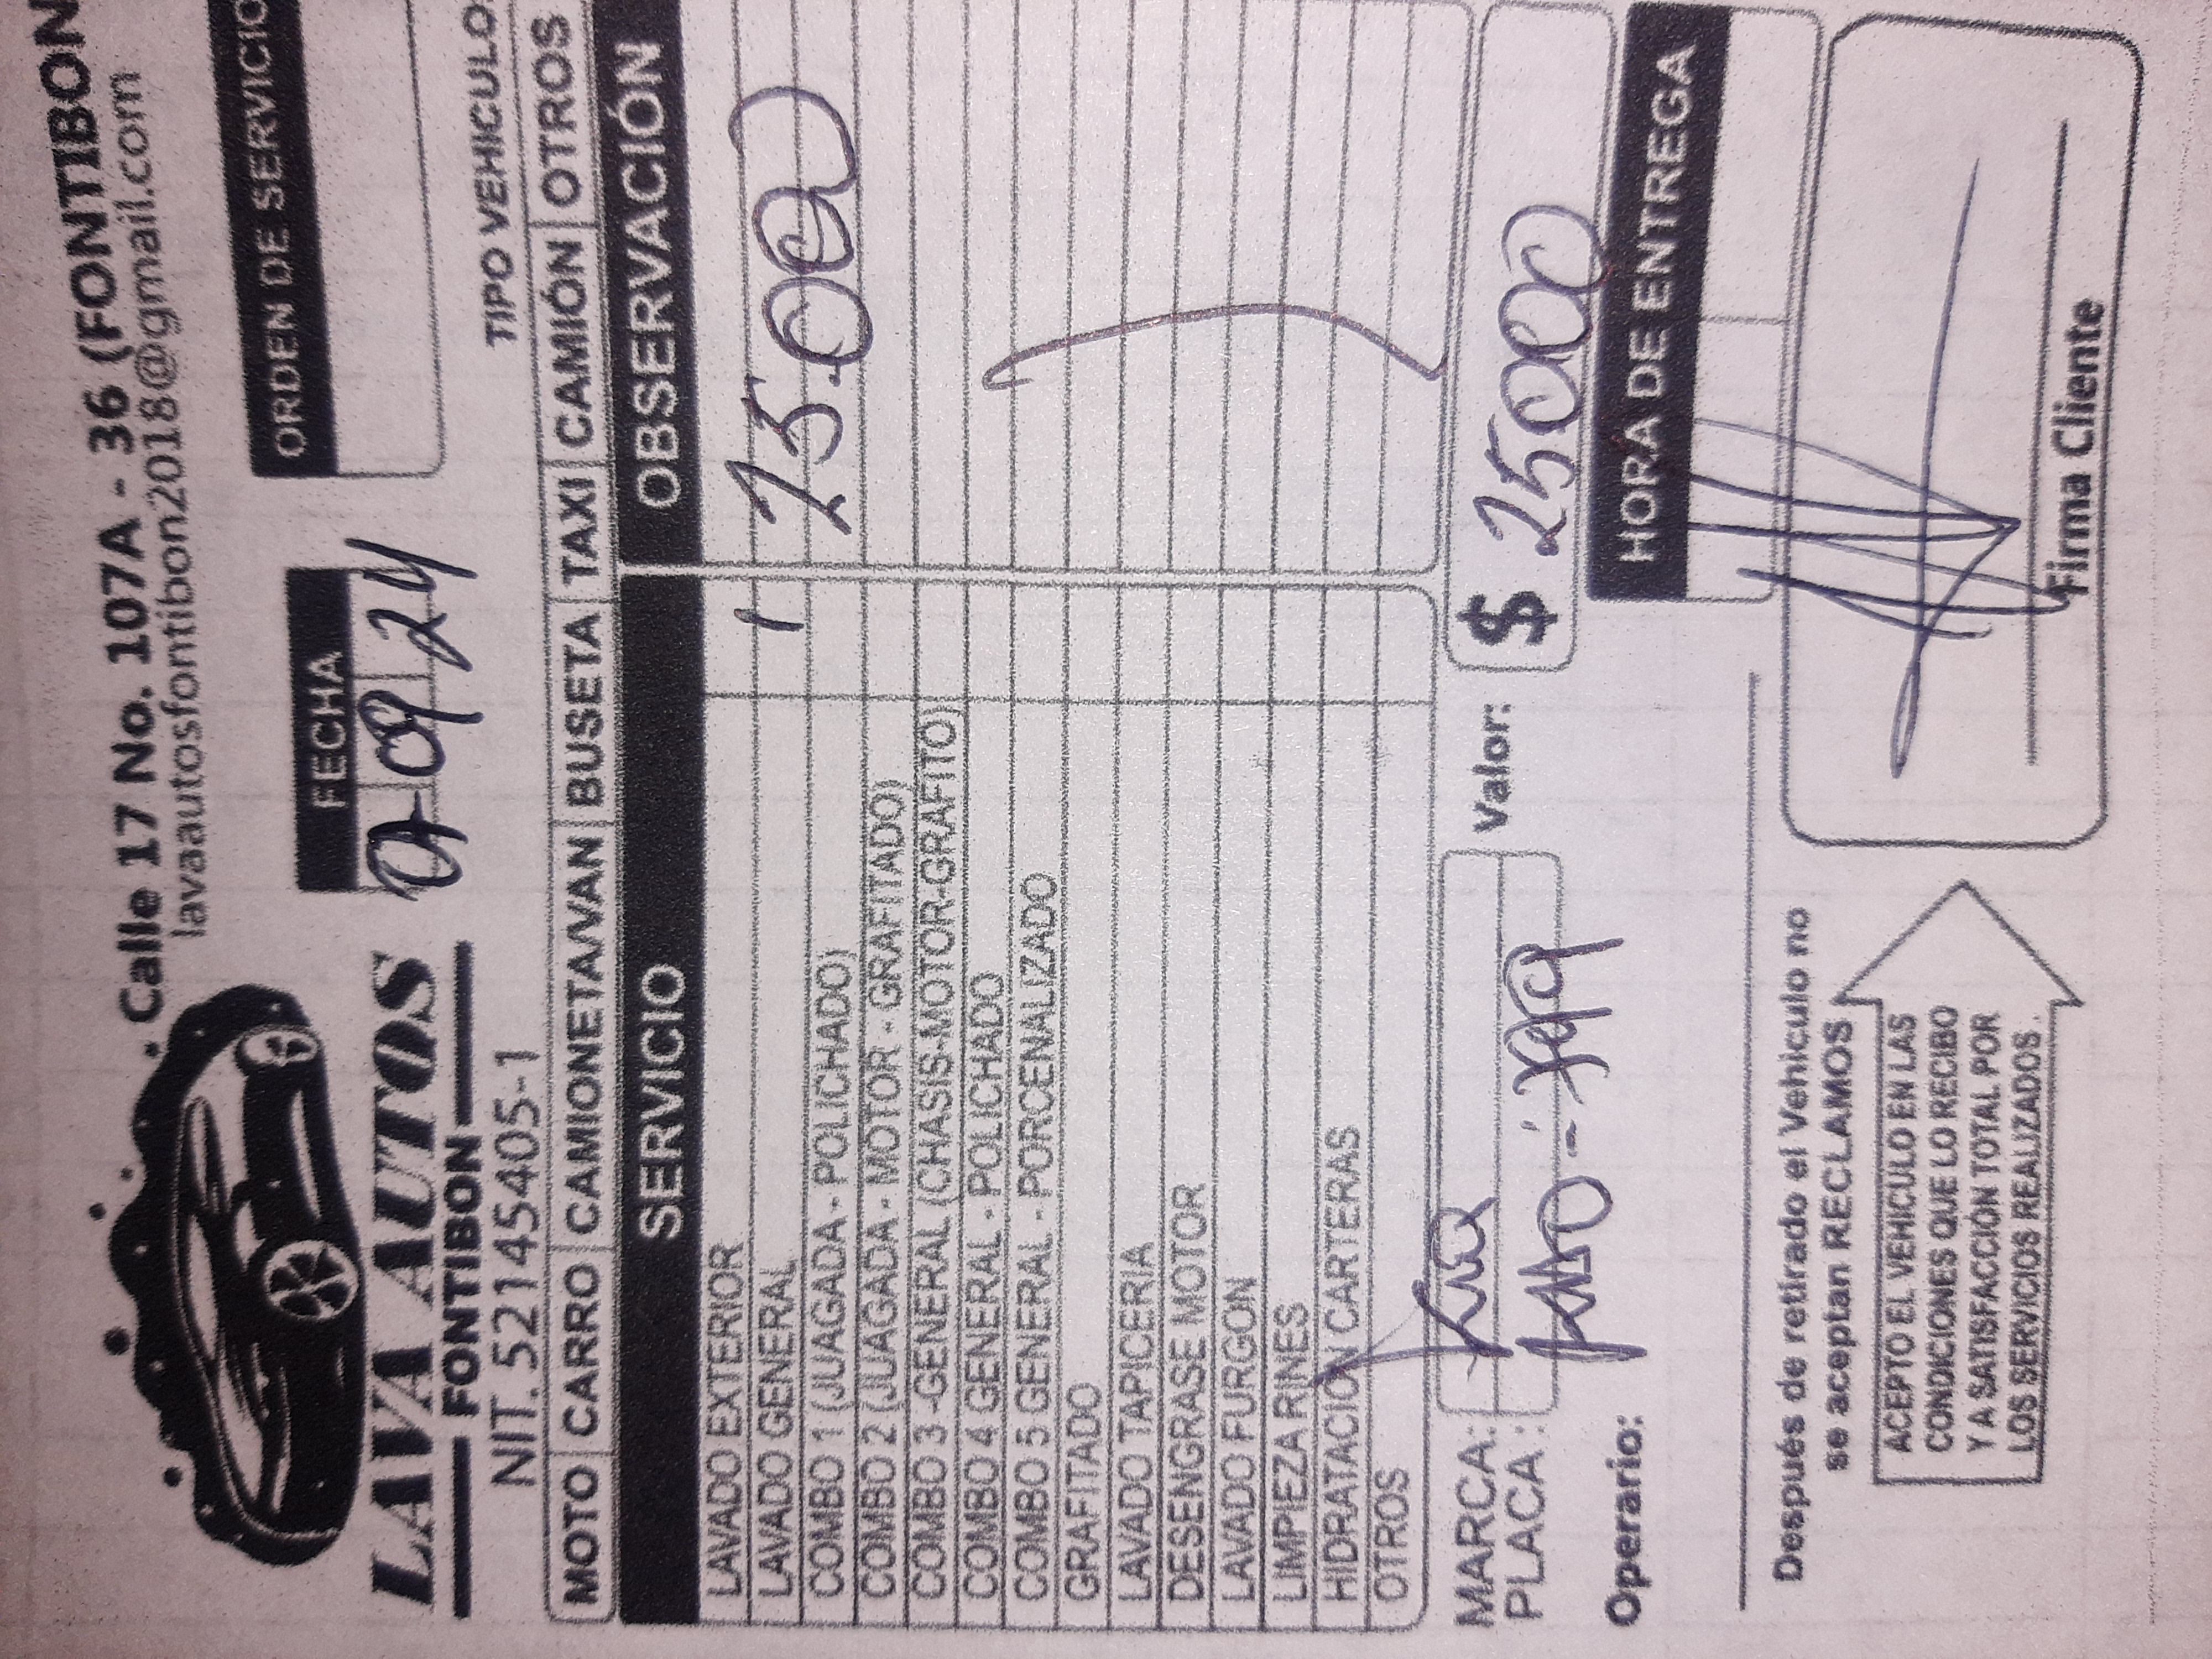 Calle 17 No. 107A - 36 (FONTIBON
lavaautosfontibon2018@gmail.com
LAVA AUTOS
FONTIBON
NIT. 52145405-1
FECHA
09 24
ORDEN DE SERVICIO
TIPO VEHICULO:
MOTO CARRO CAMIONETA/VAN BUSETA TAXI CAMIÓN OTROS
SERVICIO OBSERVACIÓN
LAVADO EXTERIOR
LAVADO GENERAL 1 25.000
COMBO 1 (JUAGADA - POLICHADO)
COMBO 2 (JUAGADA - MOTOR - GRAFITADO)
COMBO 3 -GENERAL (CHASIS-MOTOR-GRAFITO)
COMBO 4 GENERAL - POLICHADO
COMBO 5 GENERAL - PORCENALIZADO
GRAFITADO
LAVADO TAPICERIA
DESENGRASE MOTOR
LAVADO FURGON
LIMPIEZA RINES
HIDRATACION CARTERAS
OTROS
MARCA:
PLACA :
Valor: $ 25000
Operario:
HORA DE ENTREGA
Después de retirado el Vehiculo no
se aceptan RECLAMOS
ACEPTO EL VEHICULO EN LAS
CONDICIONES QUE LO RECIBO
Y A SATISFACCION TOTAL POR
LOS SERVICIOS REALIZADOS .
Firma Cliente